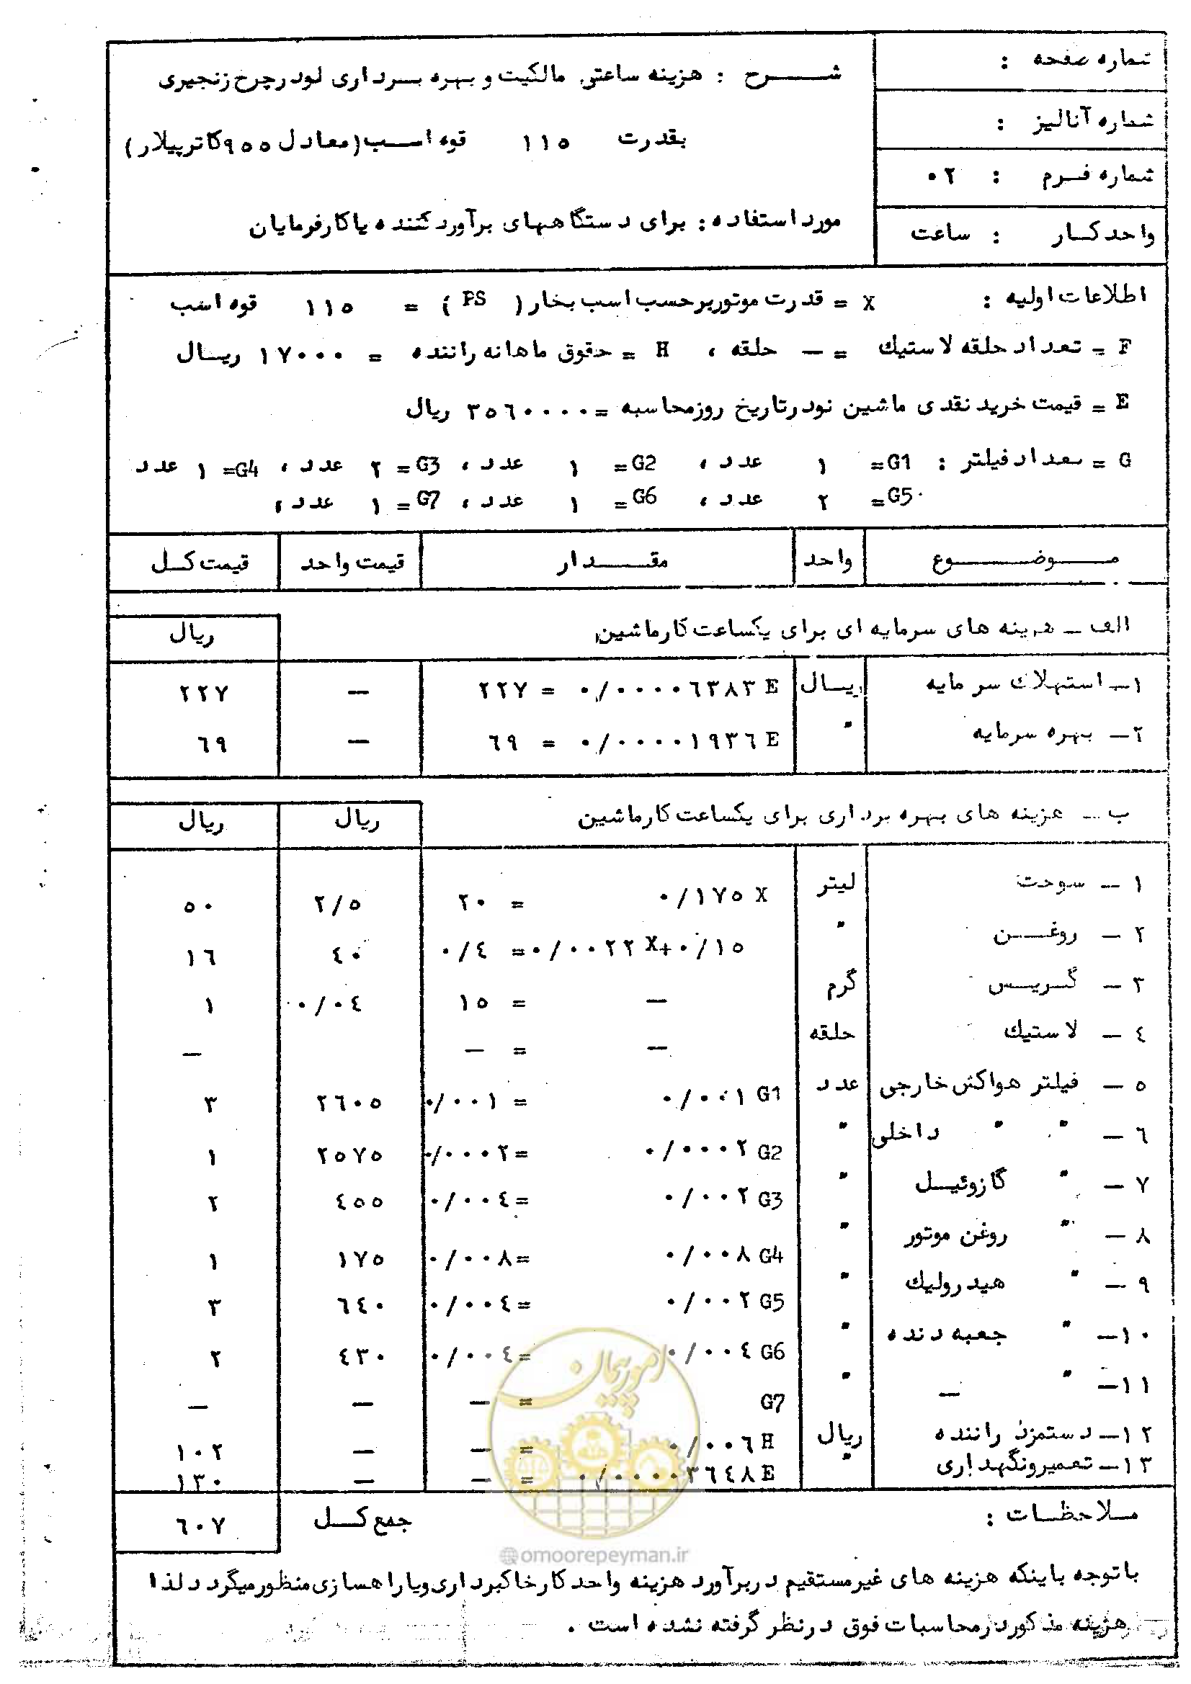 شماره صفحه :
شماره آنالیز :
شماره فرم : ۰۲
واحد کار : ساعت
شرح : هزینه ساعتی مالکیت و بهره برداری لودر چرخ زنجیری
بقدرت ۱۱۵ قوه اسب (معادل ۹۵۵ کاترپیلار)
مورد استفاده : برای دستگاههای برآورد کننده یا کارفرمایان
اطلاعات اولیه : X = قدرت موتور برحسب اسب بخار ( PS ) = ۱۱۵ قوه اسب
F = تعداد حلقه لاستیک = — حلقه ، H = حقوق ماهانه راننده = ۱۷۰۰۰ ریال
E = قیمت خرید نقدی ماشین نو در تاریخ روز محاسبه = ۳۵۶۰۰۰۰ ریال
G = تعداد فیلتر : G1= ۱ عدد ، G2= ۱ عدد ، G3= ۲ عدد ، G4= ۱ عدد
G5= ۲ عدد ، G6= ۱ عدد ، G7= ۱ عدد ،
موضوع واحد مقدار قیمت واحد قیمت کل
الف ـ هزینه های سرمایه ای برای یکساعت کار ماشین ریال
۱ـ استهلاک سرمایه ریال ۰/۰۰۰۰۶۳۸۳ E = ۲۲۷ — ۲۲۷
۲ـ بهره سرمایه " ۰/۰۰۰۰۱۹۳۶ E = ۶۹ — ۶۹
ب ـ هزینه های بهره برداری برای یکساعت کار ماشین ریال ریال
۱ ـ سوخت لیتر ۰/۱۷۵ X = ۲۰ ۲/۵ ۵۰
۲ ـ روغن " ۰/۰۰۲۲ X+۰/۱۵ = ۰/۴ ۴۰ ۱۶
۳ ـ گریس گرم — = ۱۵ ۰/۰۴ ۱
۴ ـ لاستیک حلقه — = — —
۵ ـ فیلتر هواکش خارجی عدد ۰/۰۰۱ G1 = ۰/۰۰۱ ۲۶۰۵ ۳
۶ ـ " " داخلی " ۰/۰۰۰۲ G2 = ۰/۰۰۰۲ ۲۵۷۵ ۱
۷ ـ " گازوئیل " ۰/۰۰۲ G3 = ۰/۰۰۴ ۴۵۵ ۲
۸ ـ " روغن موتور " ۰/۰۰۸ G4 = ۰/۰۰۸ ۱۷۵ ۱
۹ ـ " هیدرولیک " ۰/۰۰۲ G5 = ۰/۰۰۴ ۶۴۰ ۳
۱۰ـ " جعبه دنده " ۰/۰۰۴ G6 = ۰/۰۰۴ ۴۳۰ ۲
۱۱ـ " — " G7 = — — —
۱۲ـ دستمزد راننده ریال ۰/۰۰۶ H = — — ۱۰۲
۱۳ـ تعمیر و نگهداری " ۰/۰۰۰۰۳۶۴۸ E = — — ۱۳۰
ملاحظات : جمع کل ۶۰۷
با توجه باینکه هزینه های غیر مستقیم در برآورد هزینه واحد کار خاکبرداری و یا راهسازی منظور میگردد لذا
هزینه مذکور در محاسبات فوق در نظر گرفته نشده است .
امور پیمان
@omoorepeyman.ir